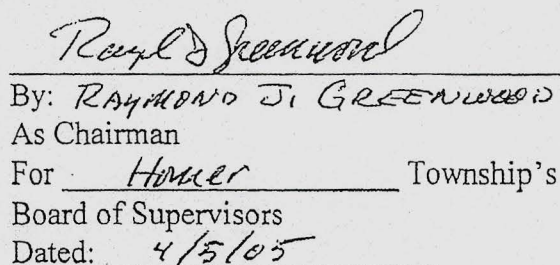 By: RAYMOND J. GREENWOOD
As Chairman
For Homer Township's
Board of Supervisors
Dated: 4/5/05